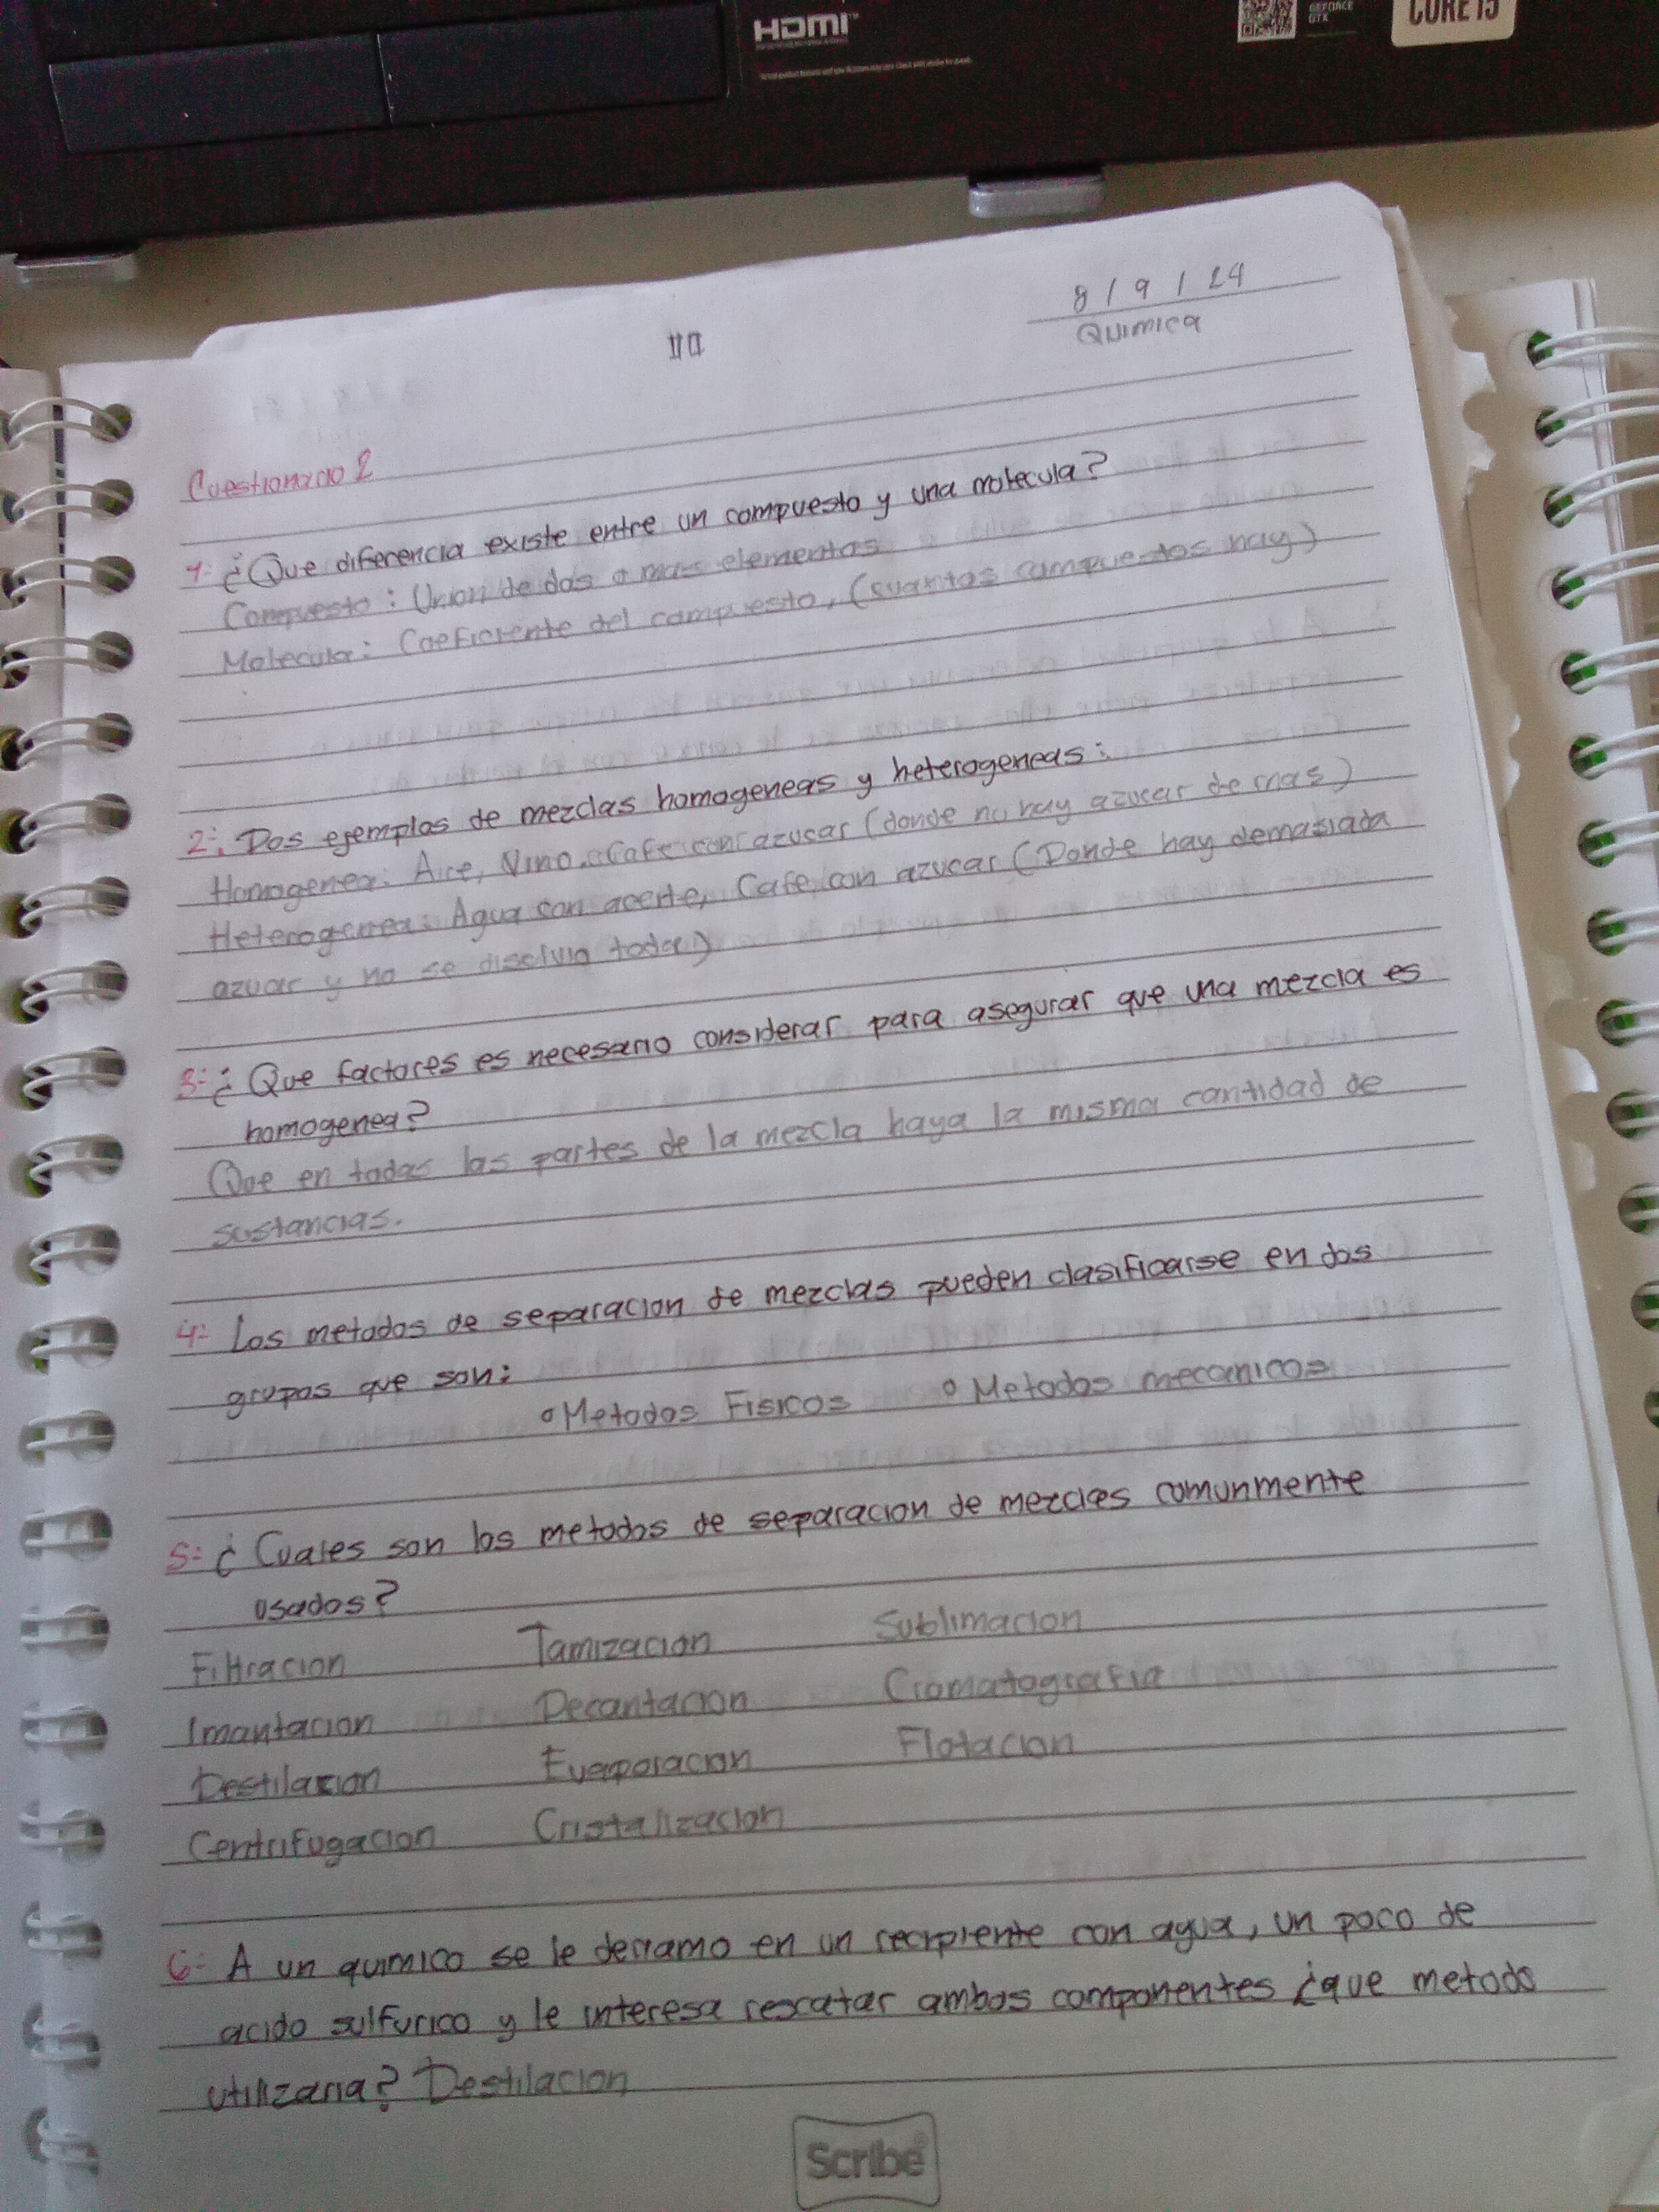 HDMI
GEFORCE
GTX
CORE i5
8 / 9 / 24
Quimica
Cuestionario 2
1- ¿Que diferencia existe entre un compuesto y una molecula?
Compuesto: Union de dos o mas elementos
Molecula: Coeficiente del compuesto, (cuantos compuestos hay)
2: Dos ejemplos de mezclas homogeneas y heterogeneas:
Homogenea: Aire, Vino, Cafe con azucar (donde no hay azucar de mas)
Heterogenea: Agua con aceite, Cafe con azucar (Donde hay demasiada
azucar y no se disolvio toda)
3- ¿Que factores es necesario considerar para asegurar que una mezcla es
homogenea?
Que en todas las partes de la mezcla haya la misma cantidad de
sustancias.
4- Los metodos de separacion de mezclas pueden clasificarse en dos
grupos que son:
Metodos Fisicos Metodos mecanicos
5- ¿Cuales son los metodos de separacion de mezclas comunmente
usados?
Filtracion Tamizacion Sublimacion
Imantacion Decantacion Cromatografia
Destilacion Evaporacion Flotacion
Centrifugacion Cristalizacion
6- A un quimico se le derramo en un recipiente con agua, un poco de
acido sulfurico y le interesa rescatar ambos componentes ¿que metodo
utilizaria? Destilacion
Scribe